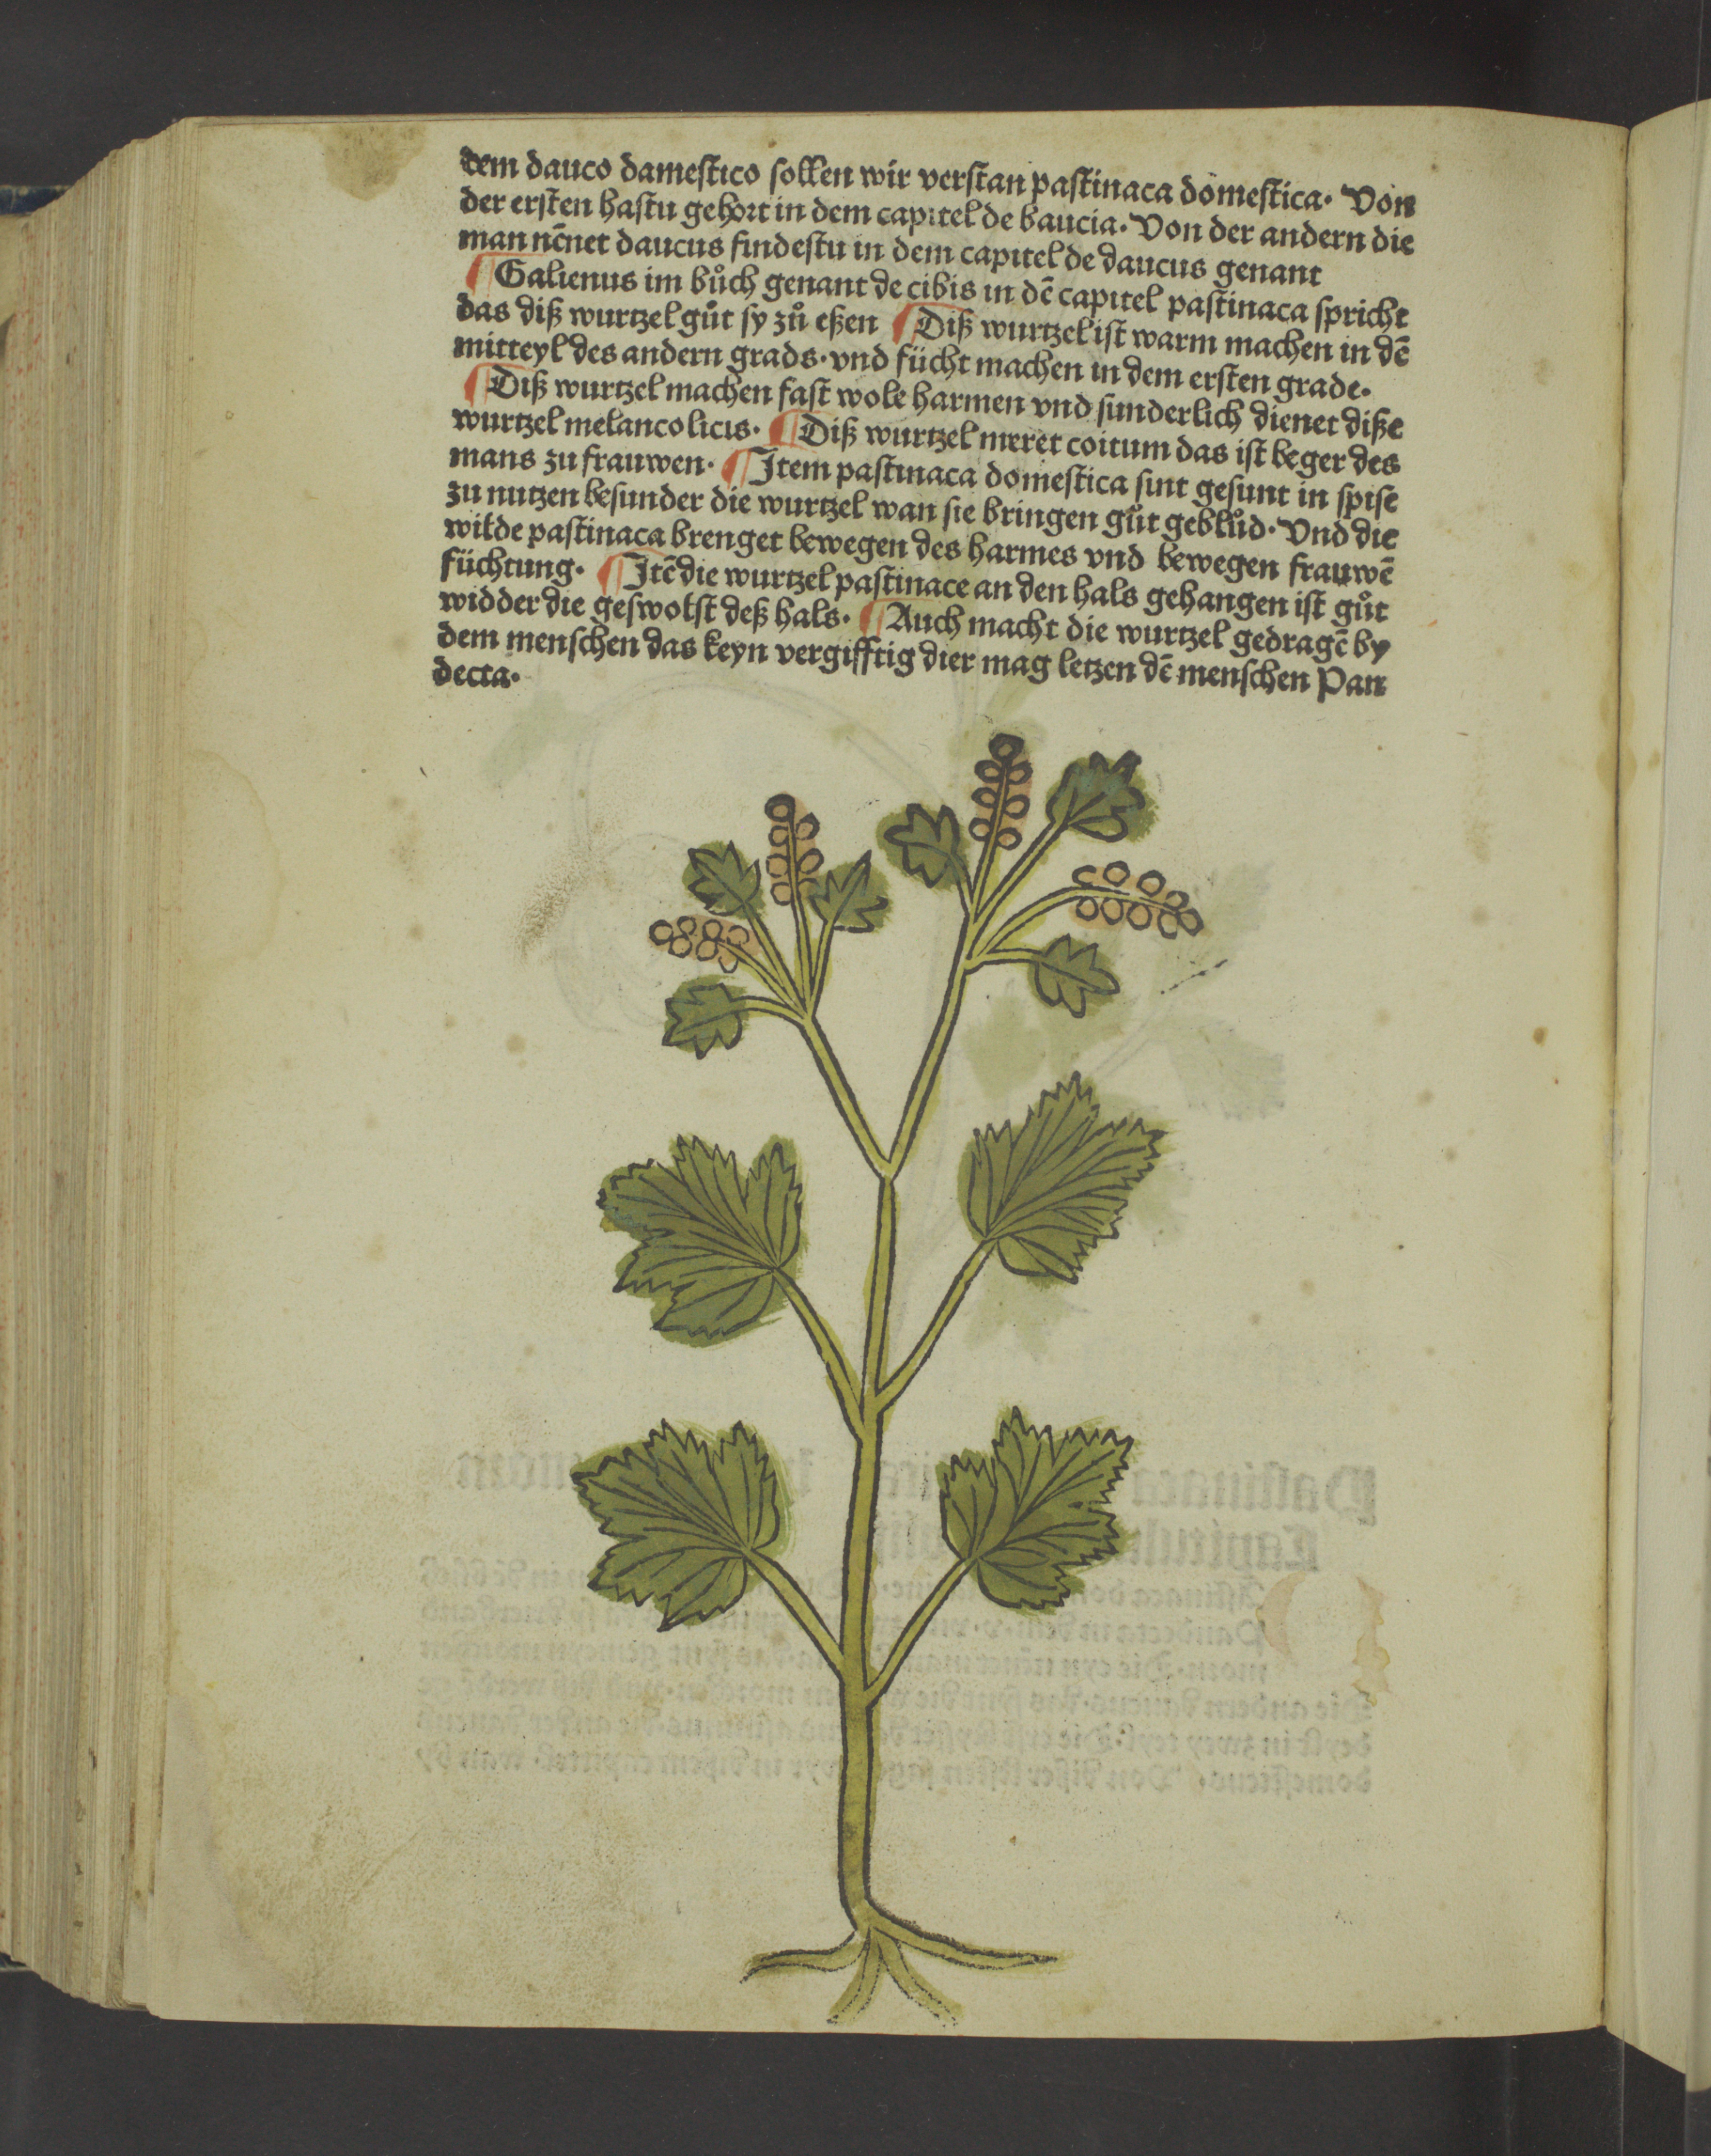 dem dauco damestico sollen wir verstan pastinaca domestica. Von
der ersten hastu gehort in dem capitel de baucia. Von der andern die
man nēnet daucus findestu in dem capitel de daucus genant
¶ Galienus im bůch genant de cibis in dē capitel pastinaca spricht
das diß wurtzel gůt sy zů eßen ¶ Diß wurtzel ist warm machen in dē
mitteyl des andern grads. vnd fücht machen in dem ersten grade.
¶ Diß wurtzel machen fast wole harmen vnd sunderlich dienet diße
wurtzel melancolicis. ¶ Diß wurtzel meret coitum das ist beger des
mans zu frauwen. ¶ Item pastinaca domestica sint gesunt in spise
zu nutzen besunder die wurtzel wan sie bringen gůt geblůd. Vnd die
wilde pastinaca brenget bewegen des harmes vnd bewegen frauwē
füchtung. ¶ Itē die wurtzel pastinace an den hals gehangen ist gůt
widder die geswolst deß hals. ¶ Auch macht die wurtzel gedragē by
dem menschen das keyn vergifftig dier mag letzen dē menschen Pan
decta.